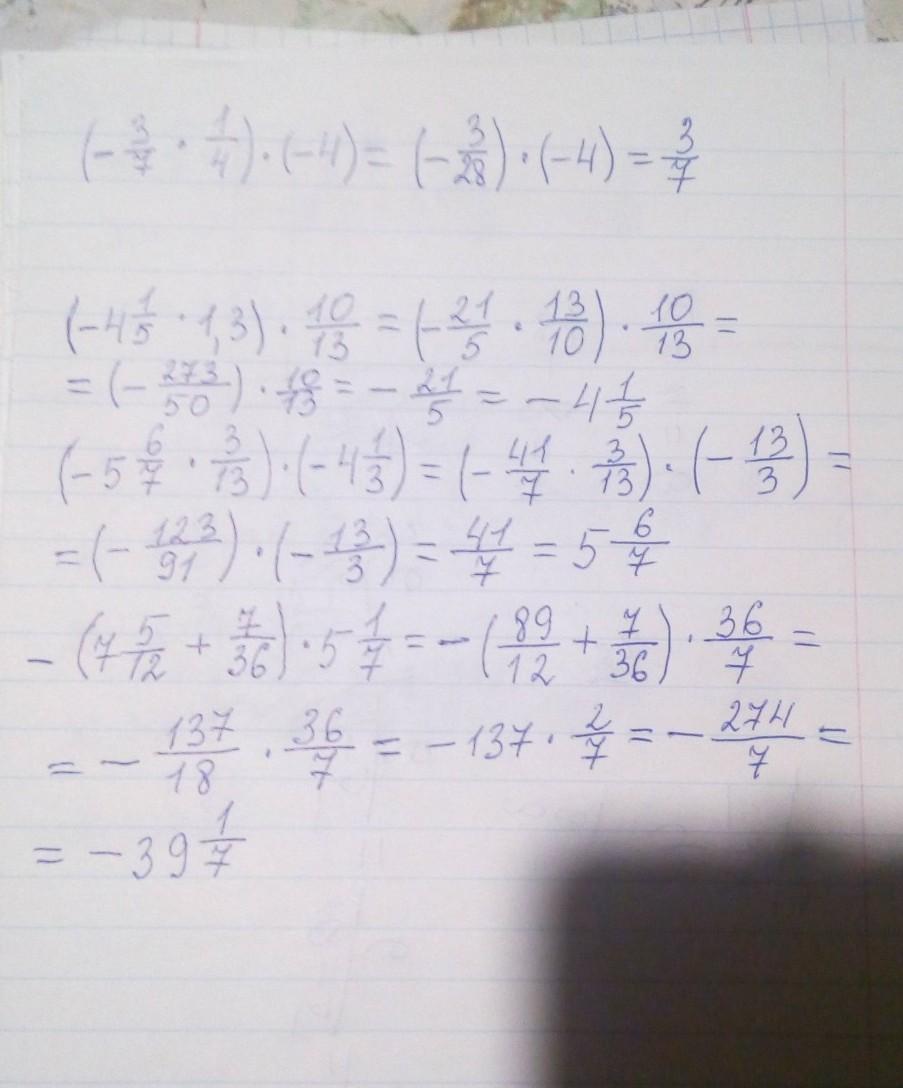 (-3/7 · 1/4) · (-4) = (-3/28) · (-4) = 3/7
(-4 1/5 · 1,3) · 10/13 = (-21/5 · 13/10) · 10/13 =
= (-273/50) · 10/13 = -21/5 = -4 1/5
(-5 6/7 · 3/13) · (-4 1/3) = (-41/7 · 3/13) · (-13/3) =
= (-123/91) · (-13/3) = 41/7 = 5 6/7
- (7 5/12 + 7/36) · 5 1/7 = - (89/12 + 7/36) · 36/7 =
= - 137/18 · 36/7 = -137 · 2/7 = - 274/7 =
= -39 1/7